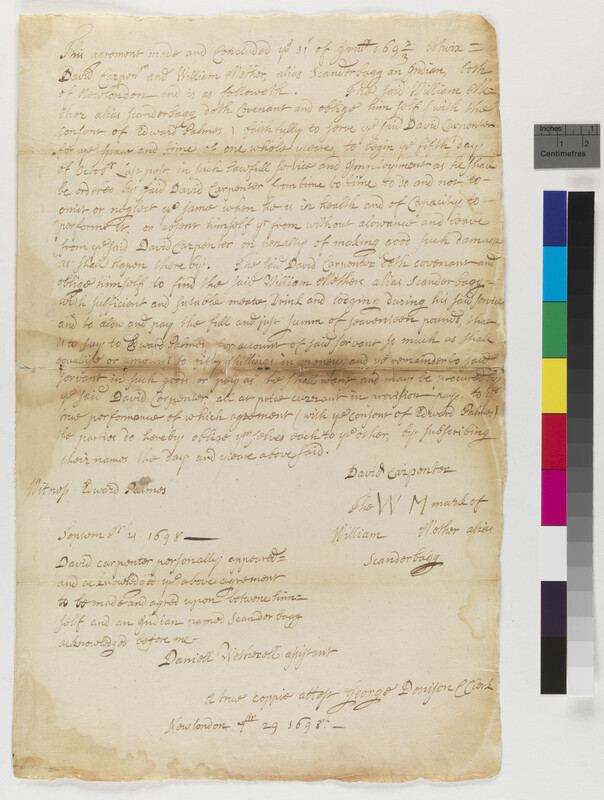 This agrement made and Concluded ye 31t of 169 2/3 betwix
David Carpenr and William Mether, alias Scanderbagg an Indian, both
of Newlondon and is as followeth. The said William Me-
ther alias Scanderbagg doth Covenant and oblige him self (with the
Consent of Edward Palmes) faithfully to serve ye said David Carpenter
for ye space and time of one whole yeare to begin ye fifth day
of Last past in such Lawfull service and Imployment as he shall
be ordered by said David Carpenter from time to time to do and not to
omit or neglect ye same when he is in health and of Capacity to
performe it, or absent himself from without alowance and Leave
from ye said David Carpenter on penalty of making good such damage
as shall hapen there by. The said David Carpenter doth covenant and
oblige himself to find the said William Mether alias Scanderbagg
with sufficient and sutable meate Drink and Lodging during his said service
and to alow and pay the full and just summ of seaventeen pounds, that
is to say to Edward Palmes for account of said servant so much as shall
equalise or amount to fifty shillings in money and ye remainder to said
servant in such goods or pay as he shall want and may be procured by
ye said David Carpenter all at price currant in provision pay. to ye
true performance of which agreement (with ye Consent of Edward Palmes)
the parties do hereby oblige ym selves each to ye other, by subscribing
their names the day and yeare above said.
David Carpenter
Witness Edward Palmes
The W M mark of
William Mether alias
Scanderbagg
Septem br 21 1698
David carpenter personally appeared
and acknowledged ye above agreement
to be made and agred upon betwene him
self and an Indian named Scanderbagg
acknowledged before me
Daniell Wetherell assistant
A true coppie attest George Denison Clerk
Newlondon 29 1698
Inches 1 2
Centimetres